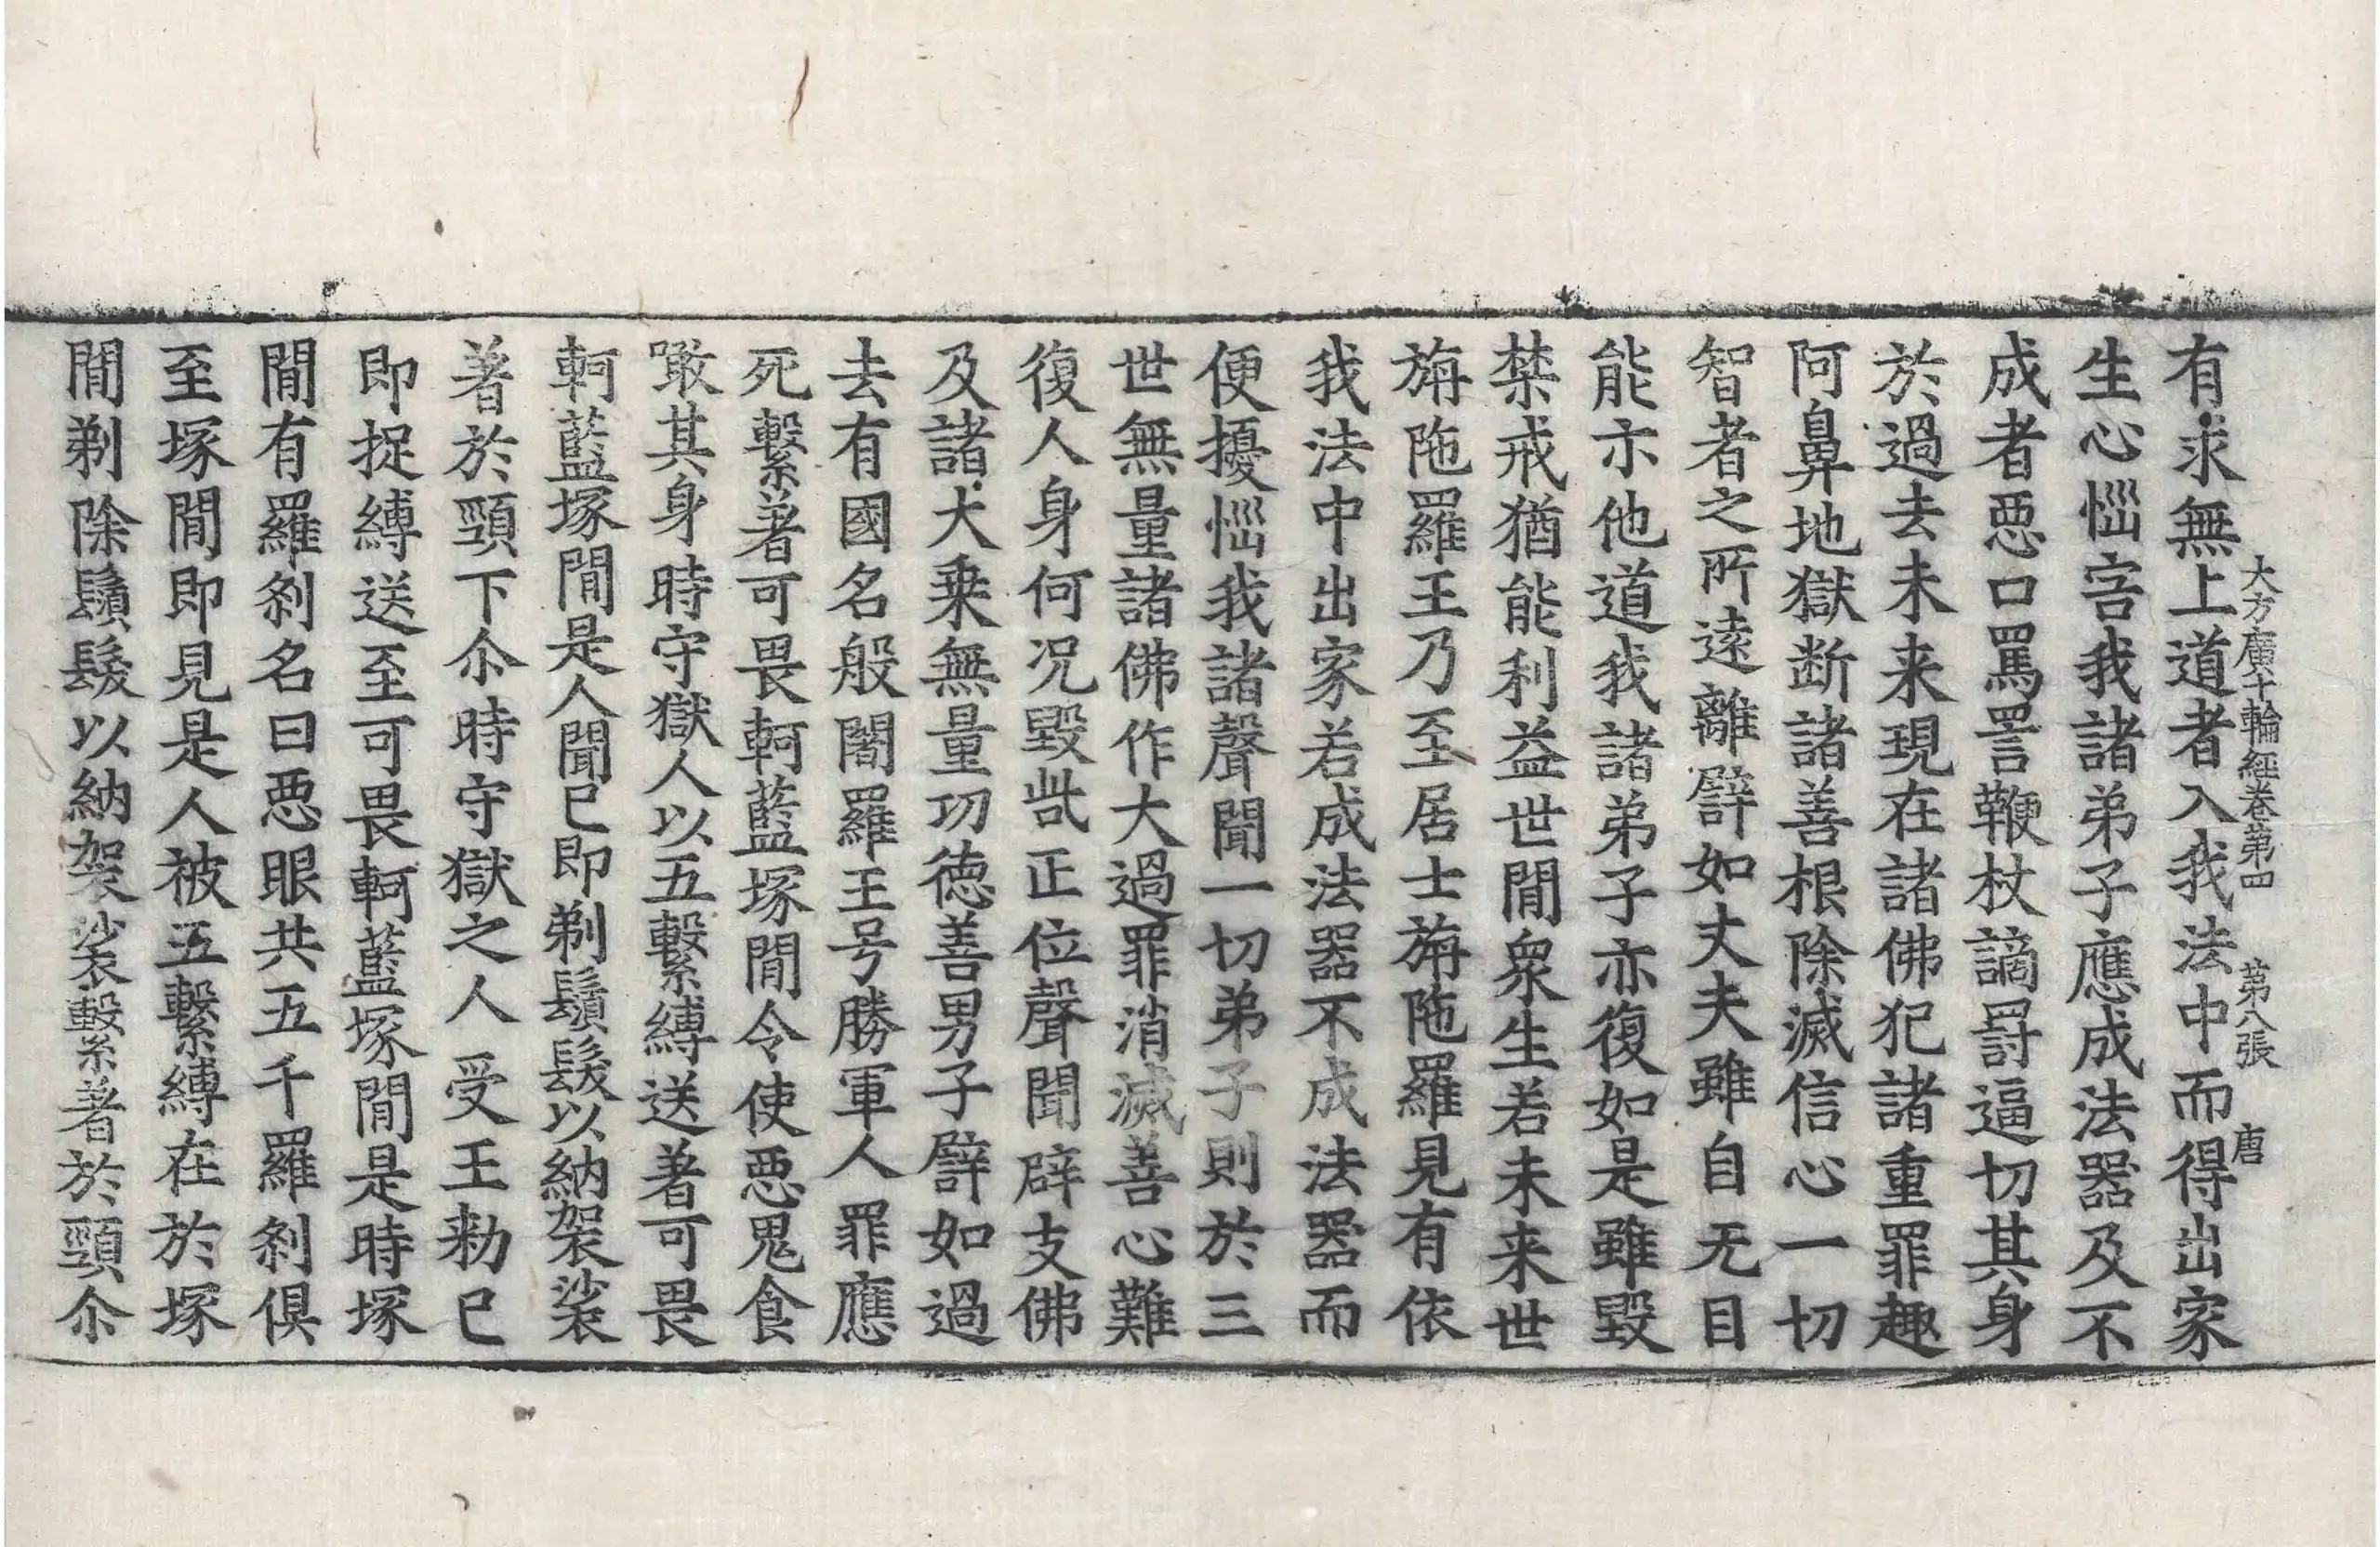 大方廣十輪經卷第四　第八張　唐
有求無上道者入我法中而得出家
生心惱害我諸弟子應成法器及不
成者惡口罵詈鞭杖謫罰逼切其身
於過去未来現在諸佛犯諸重罪趣
阿鼻地獄断諸善根除滅信心一切
智者之所遠離譬如丈夫雖自无目
能示他道我諸弟子亦復如是雖毀
禁戒猶能利益世間衆生若未来世
旃陁羅王乃至居士旃陁羅見有依
我法中出家若成法器不成法器而
便擾惱我諸聲聞一切弟子則於三
世無量諸佛作大過罪消滅善心難
復人身何况毀呰正位聲聞辟支佛
及諸大乗無量功徳善男子譬如過
去有國名般闍羅王号勝軍人罪應
死繫著可畏軻藍塚間令使惡鬼食
噉其身時守獄人以五繫縛送著可畏
軻藍塚間是人聞已即剃鬚髮以納袈裟
著於頸下尒時守獄之人受王勑已
即捉縛送至可畏軻藍塚間是時塚
間有羅刹名曰惡眼共五千羅刹俱
至塚間即見是人被五繫縛在於塚
間剃除鬚髮以納袈裟繫著於頸尒